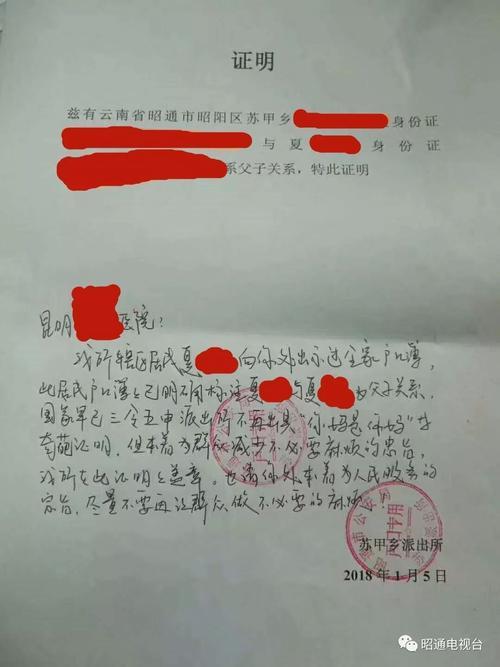 证明
兹有云南省昭通市昭阳区苏甲乡 身份证
与夏 身份证
系父子关系，特此证明
昆明 医院：
我所辖区居民夏 向你处出示过全家户口簿，
此居民户口簿上已明确标注夏 与夏 为父子关系，
国家早已三令五申派出所不再出具“你妈是你妈”等
奇葩证明，但本着为群众减少不必要麻烦的宗旨，
我所在此证明上盖章。也请你处本着为人民服务的
宗旨，尽量不要再让群众做不必要的麻烦！
苏甲乡派出所
2018年1月5日
户口专用
昭通电视台